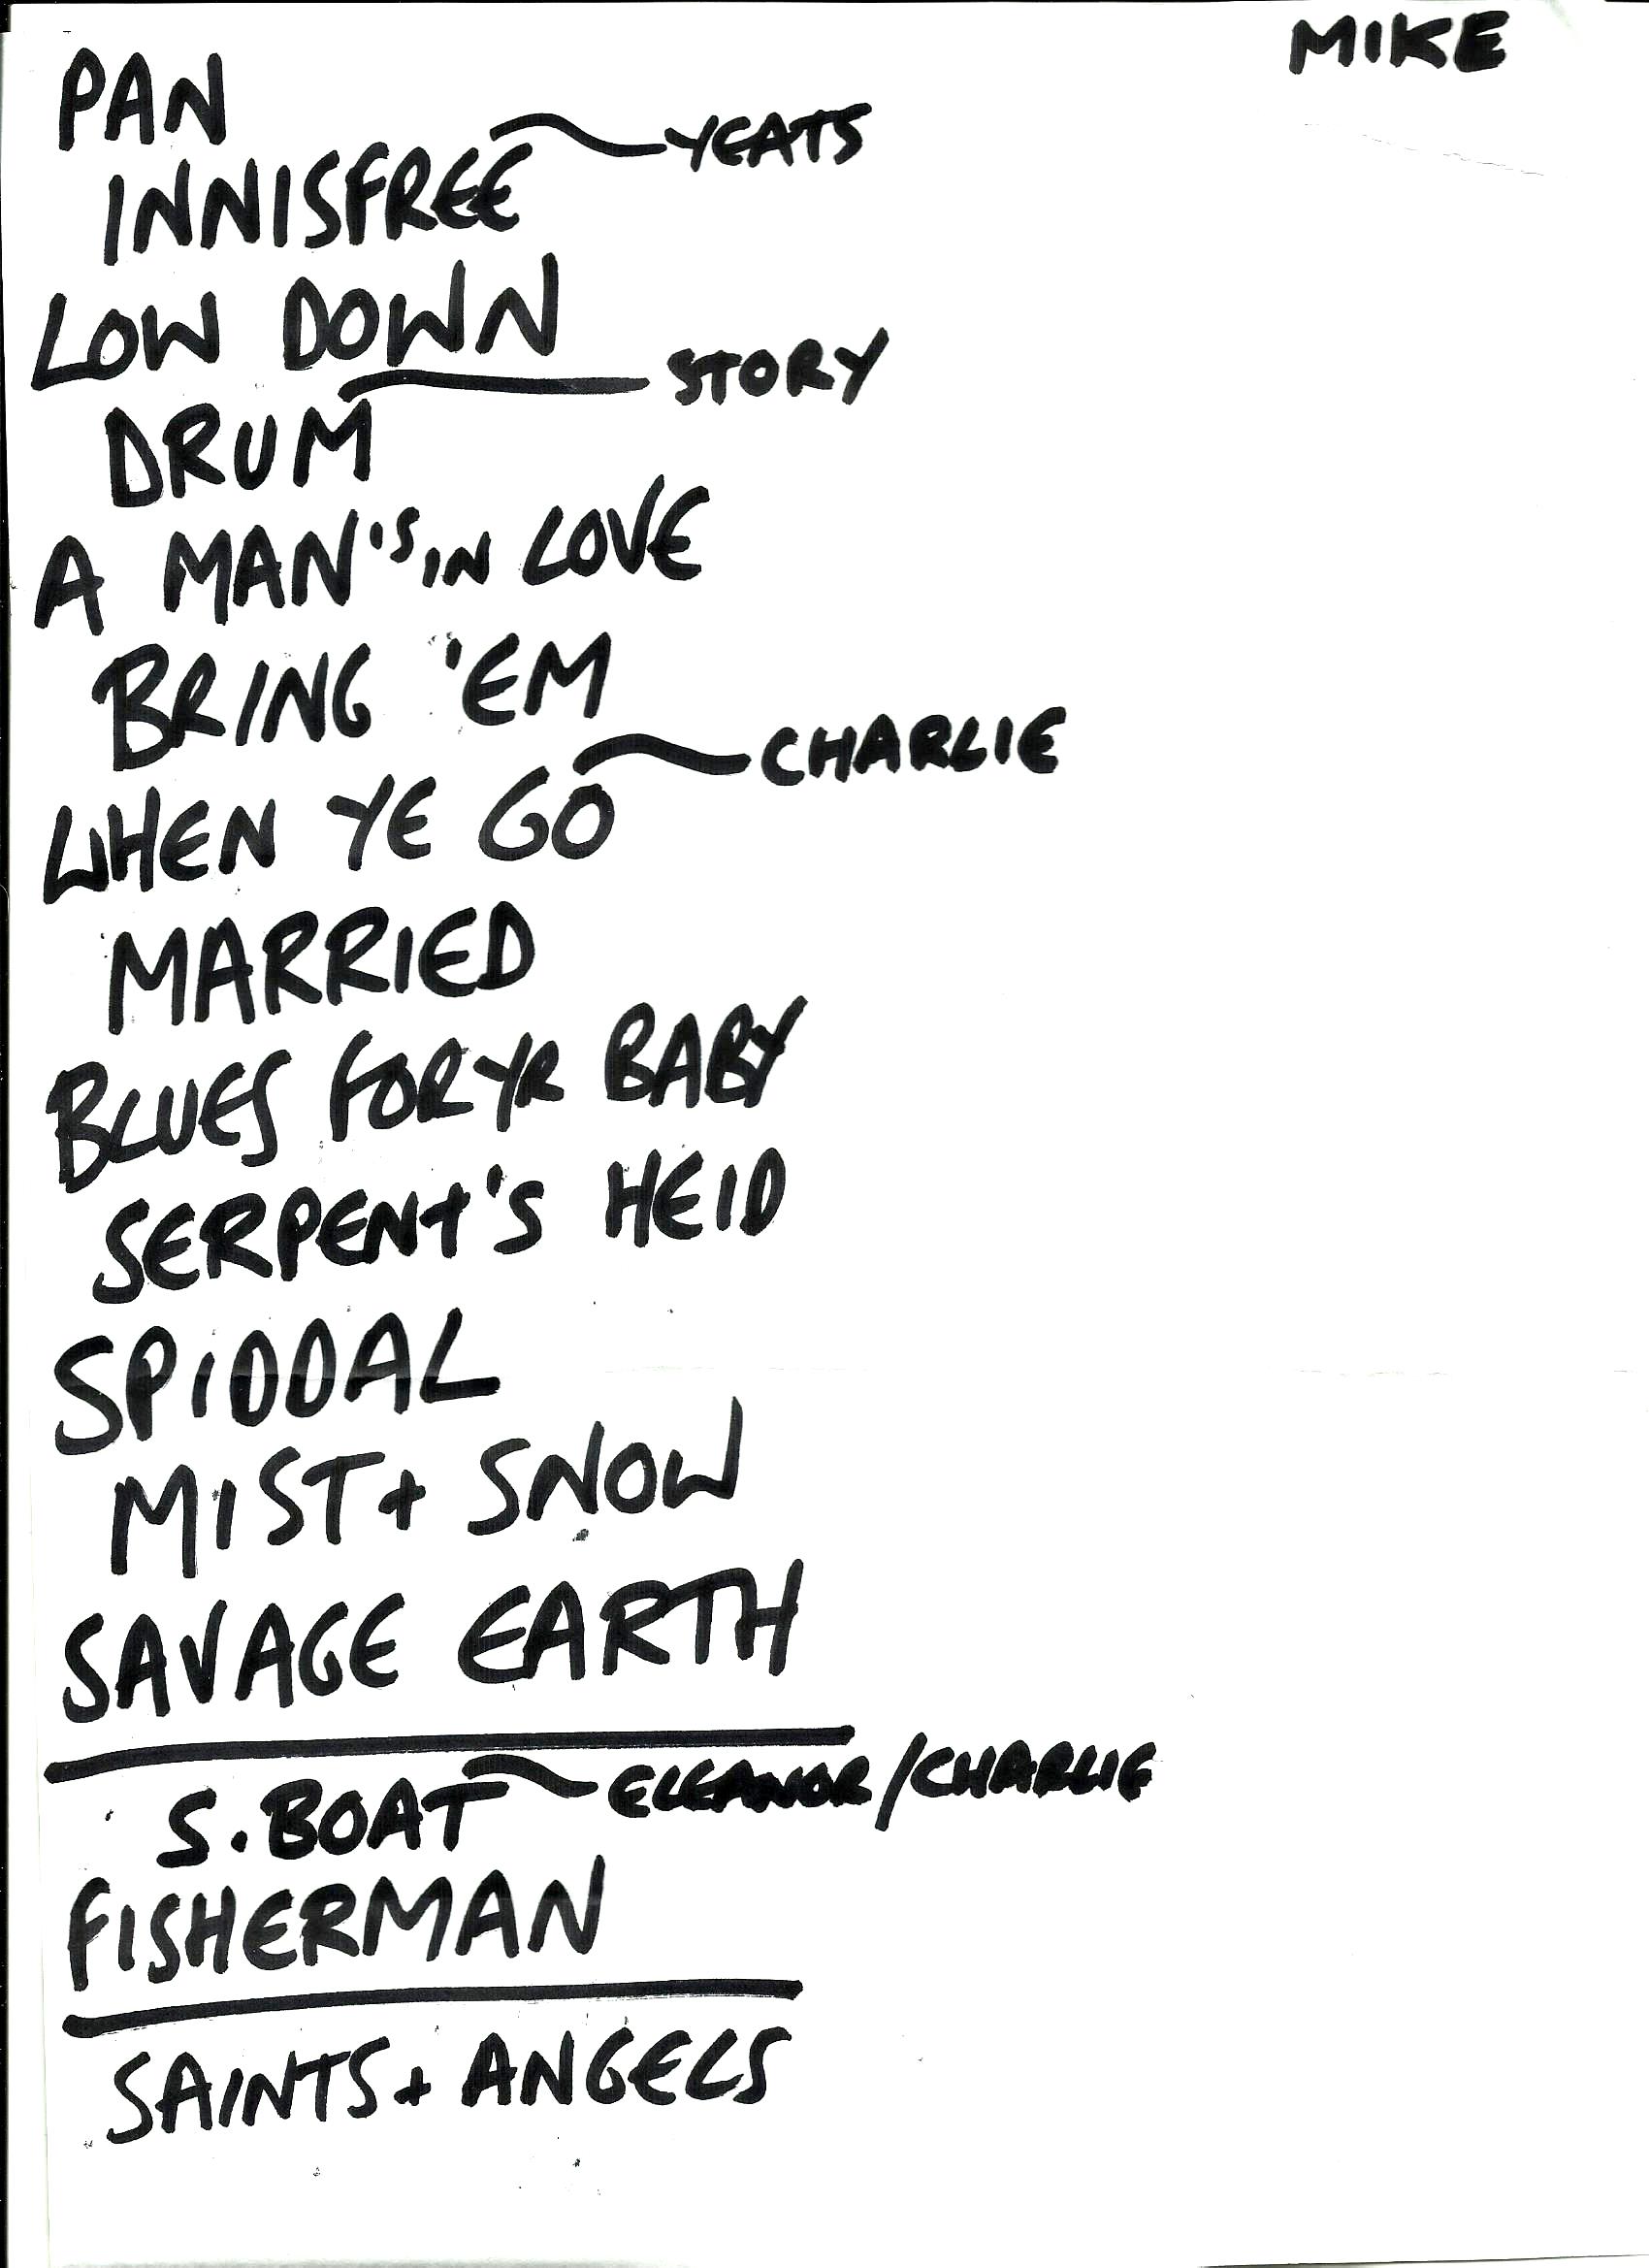 MIKE
PAN
YEATS
INNISFREE
LOW DOWN
STORY
DRUM
A MAN'S IN LOVE
BRING 'EM
CHARLIE
WHEN YE GO
MARRIED
BLUES FOR YR BABY
SERPENT'S HEID
SPIDDAL
MIST + SNOW
SAVAGE EARTH
S. BOAT ELEANOR/CHARLIE
FISHERMAN
SAINTS + ANGELS